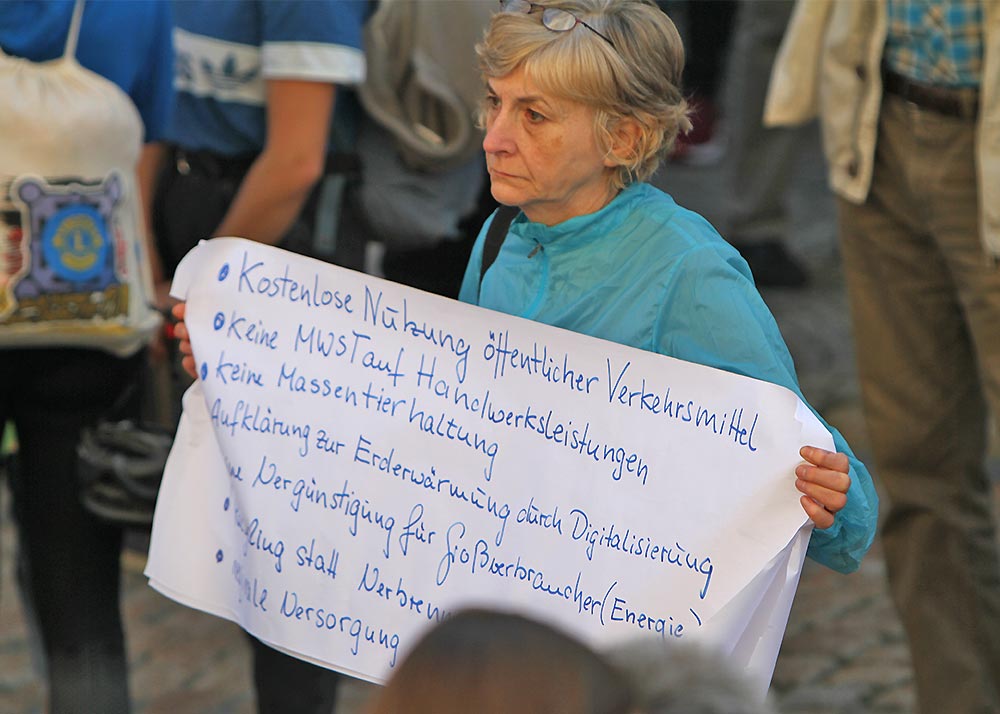 • Kostenlose Nutzung öffentlicher Verkehrsmittel
• Keine MWST auf Handwerksleistungen
• Keine Massentierhaltung
Aufklärung zur Erderwärmung durch Digitalisierung
Vergünstigung für Großverbraucher (Energie)
• statt
• Versorgung